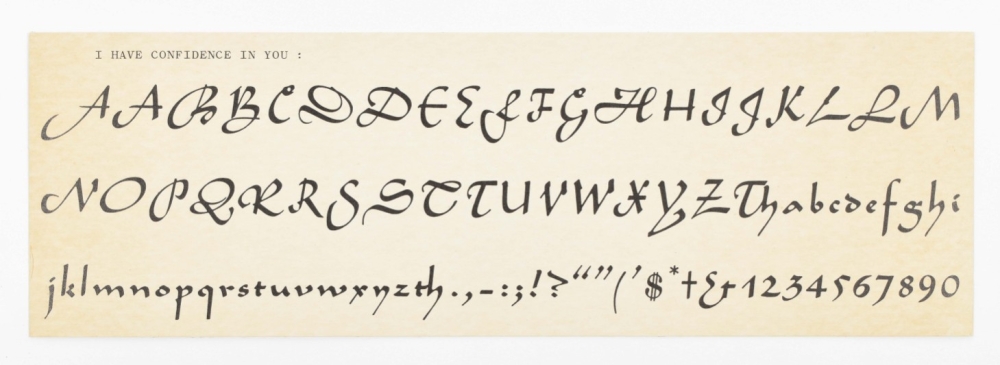 I HAVE CONFIDENCE IN YOU :
AABBCDDEEFFGHHIJKLLM
NOPQRRSSTTUVWXYZThabcdefghi
jklmnopqrstuvwxyzth.,-:;!?“”(’$*†&1234567890